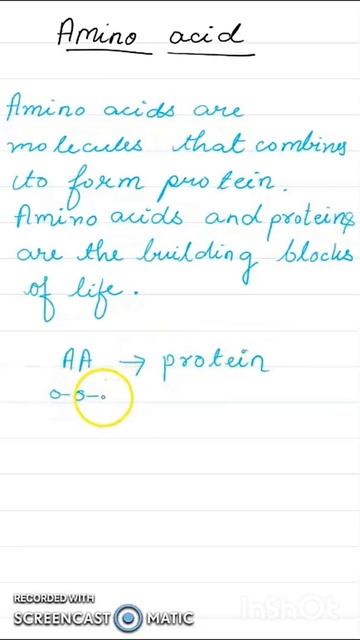 Amino acid
Amino acids are
molecules that combines
to form protein.
Amino acids and proteins
are the building blocks
of life.
AA → protein
RECORDED WITH
SCREENCAST MATIC
InShOt